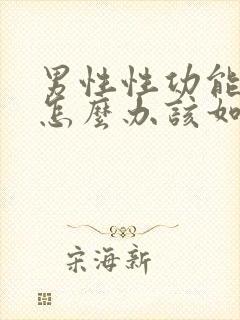 男性性功能
怎麼办該如
宋海新